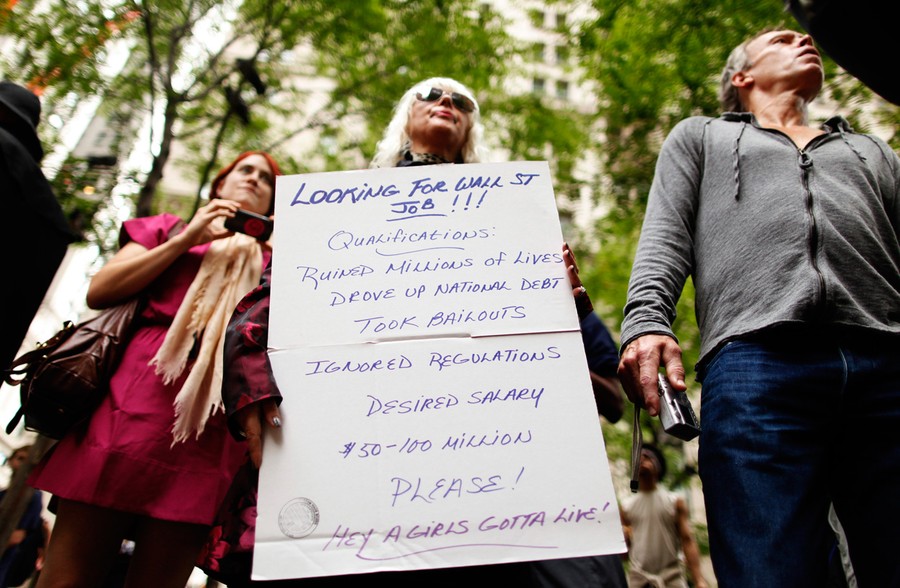 LOOKING FOR WALL ST
JOB!!!
QUALIFICATIONS:
RUINED MILLIONS OF LIVES
DROVE UP NATIONAL DEBT
TOOK BAILOUTS
IGNORED REGULATIONS
DESIRED SALARY
$50-100 MILLION
PLEASE!
HEY A GIRLS GOTTA LIVE!